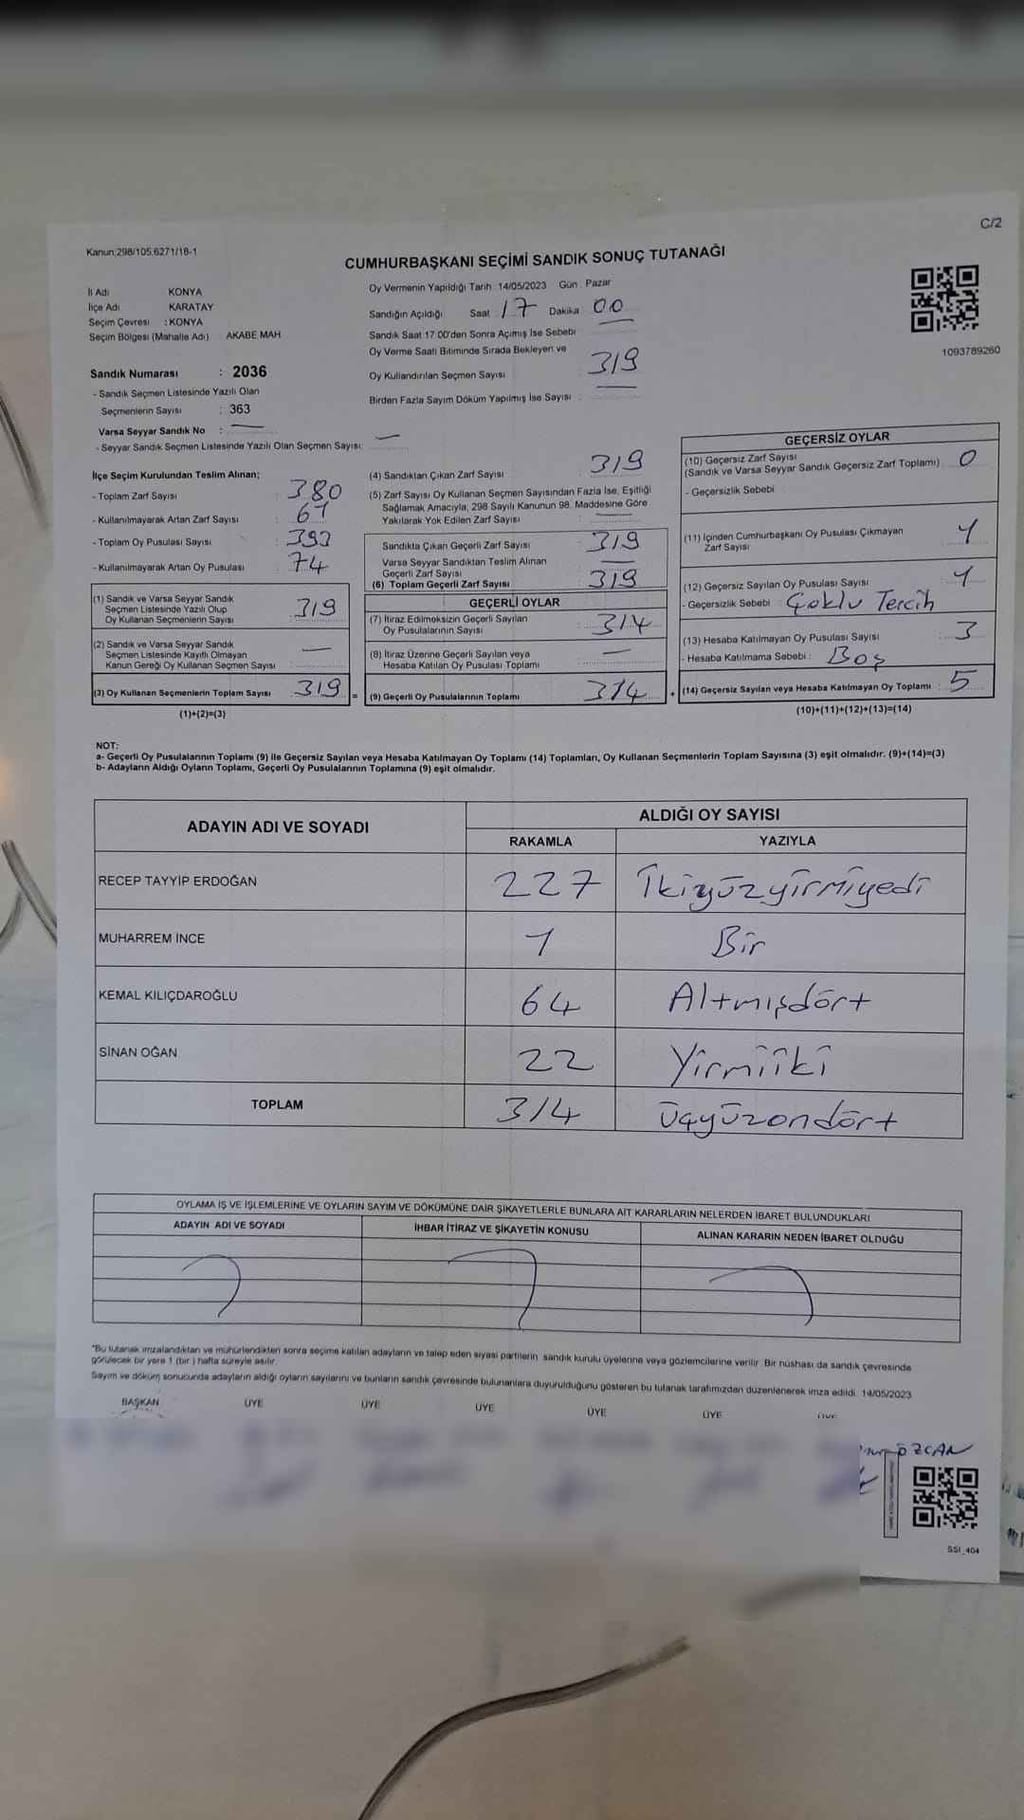 C/2
Kanun:298/105,6271/18-1
CUMHURBAŞKANI SEÇİMİ SANDIK SONUÇ TUTANAĞI
İl Adı KONYA
İlçe Adı KARATAY
Seçim Çevresi : KONYA
Seçim Bölgesi (Mahalle Adı) AKABE MAH
Sandık Numarası : 2036
- Sandık Seçmen Listesinde Yazılı Olan
Seçmenlerin Sayısı : 363
Varsa Seyyar Sandık No : —
- Seyyar Sandık Seçmen Listesinde Yazılı Olan Seçmen Sayısı: —
Oy Vermenin Yapıldığı Tarih 14/05/2023 Gün Pazar
Sandığın Açıldığı Saat 17 Dakika 00
Sandık Saat 17.00'den Sonra Açılmış İse Sebebi
Oy Verme Saati Bitiminde Sırada Bekleyen ve
Oy Kullandırılan Seçmen Sayısı 319
Birden Fazla Sayım Döküm Yapılmış İse Sayısı :
1093789260
İlçe Seçim Kurulundan Teslim Alınan;
- Toplam Zarf Sayısı : 380
- Kullanılmayarak Artan Zarf Sayısı : 61
- Toplam Oy Pusulası Sayısı : 393
- Kullanılmayarak Artan Oy Pusulası : 74
(1) Sandık ve Varsa Seyyar Sandık
Seçmen Listesinde Yazılı Olup
Oy Kullanan Seçmenlerin Sayısı : 319
(2) Sandık ve Varsa Seyyar Sandık
Seçmen Listesinde Kayıtlı Olmayan
Kanun Gereği Oy Kullanan Seçmen Sayısı —
(3) Oy Kullanan Seçmenlerin Toplam Sayısı 319 =
(1)+(2)=(3)
(4) Sandıktan Çıkan Zarf Sayısı 319
(5) Zarf Sayısı Oy Kullanan Seçmen Sayısından Fazla İse, Eşitliği
Sağlamak Amacıyla, 298 Sayılı Kanunun 98. Maddesine Göre
Yakılarak Yok Edilen Zarf Sayısı :
Sandıkta Çıkan Geçerli Zarf Sayısı : 319
Varsa Seyyar Sandıktan Teslim Alınan
Geçerli Zarf Sayısı —
(6) Toplam Geçerli Zarf Sayısı 319
GEÇERLİ OYLAR
(7) İtiraz Edilmeksizin Geçerli Sayılan
Oy Pusulalarının Sayısı : 314
(8) İtiraz Üzerine Geçerli Sayılan veya
Hesaba Katılan Oy Pusulası Toplamı —
(9) Geçerli Oy Pusulalarının Toplamı 314 +
GEÇERSİZ OYLAR
(10) Geçersiz Zarf Sayısı
(Sandık ve Varsa Seyyar Sandık Geçersiz Zarf Toplamı) 0
- Geçersizlik Sebebi
(11) İçinden Cumhurbaşkanı Oy Pusulası Çıkmayan
Zarf Sayısı 1
(12) Geçersiz Sayılan Oy Pusulası Sayısı : 1
- Geçersizlik Sebebi : Çoklu Tercih
(13) Hesaba Katılmayan Oy Pusulası Sayısı : 3
- Hesaba Katılmama Sebebi : Boş
(14) Geçersiz Sayılan veya Hesaba Katılmayan Oy Toplamı : 5
(10)+(11)+(12)+(13)=(14)
NOT:
a- Geçerli Oy Pusulalarının Toplamı (9) ile Geçersiz Sayılan veya Hesaba Katılmayan Oy Toplamı (14) Toplamları, Oy Kullanan Seçmenlerin Toplam Sayısına (3) eşit olmalıdır. (9)+(14)=(3)
b- Adayların Aldığı Oyların Toplamı, Geçerli Oy Pusulalarının Toplamına (9) eşit olmalıdır.
ADAYIN ADI VE SOYADI ALDIĞI OY SAYISI
RAKAMLA YAZIYLA
RECEP TAYYİP ERDOĞAN 227 İkiyüzyirmiyedi
MUHARREM İNCE 1 Bir
KEMAL KILIÇDAROĞLU 64 Altmışdört
SİNAN OĞAN 22 Yirmiiki
TOPLAM 314 üçyüzondört
OYLAMA İŞ VE İŞLEMLERİNE VE OYLARIN SAYIM VE DÖKÜMÜNE DAİR ŞİKAYETLERLE BUNLARA AİT KARARLARIN NELERDEN İBARET BULUNDUKLARI
ADAYIN ADI VE SOYADI İHBAR İTİRAZ VE ŞİKAYETİN KONUSU ALINAN KARARIN NEDEN İBARET OLDUĞU
"Bu tutanak imzalandıktan ve mühürlendikten sonra seçime katılan adayların ve talep eden siyasi partilerin sandık kurulu üyelerine veya gözlemcilerine verilir. Bir nüshası da sandık çevresinde
görülecek bir yere 1 (bir) hafta süreyle asılır.
Sayım ve döküm sonucunda adayların aldığı oyların sayılarını ve bunların sandık çevresinde bulunanlara duyurulduğunu gösteren bu tutanak tarafımızdan düzenlenerek imza edildi. 14/05/2023
BAŞKAN ÜYE ÜYE ÜYE ÜYE ÜYE ÜYE
ÖZCAN
SSI_404